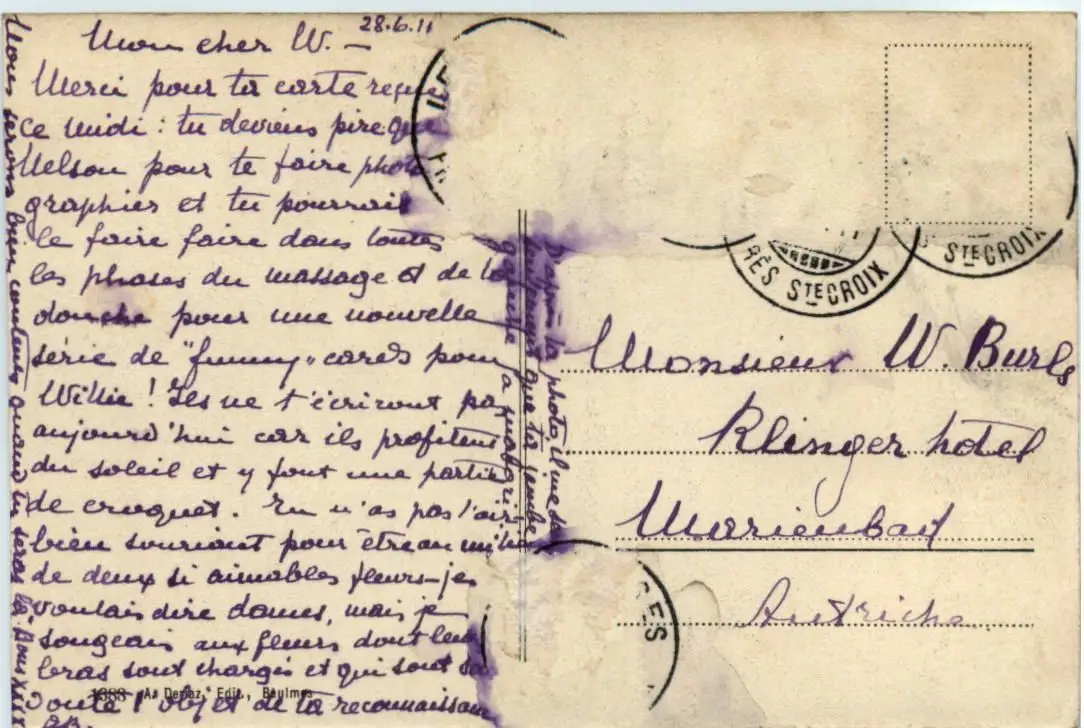 28.6.11
Mon cher W. —
Merci pour ta carte reçue
ce midi : tu deviens pire que
Nelson pour te faire photo
graphier et tu pourrais
le faire faire dans toutes
les phases du massage et de la
douche pour une nouvelle
série de "funny" cards pour
Willie ! Ils ne t'écriront pas
aujourd'hui car ils profitent
du soleil et y font une partie
de croquet. Tu n'as pas l'air
bien souriant pour être au milieu
de deux si aimables fleurs - je
voulais dire dames, mais je
songeais aux fleurs dont leurs
bras sont chargés et qui sont sans
doute l'objet de ta reconnaissance
D'après la photo, il me
que ta jambe
gauche a
Nous serons bien contents quand tu seras là. Bons
1383 Az Depaz, Edit., Baulmes
RÈS STE CROIX
STE CROIX
GES
Monsieur W. Burls
Klinger hotel
Marienbad
Autriche